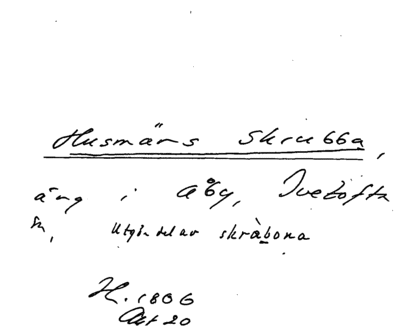 Husmärs Skrubba,
äng i Åby, Ivetofta
sn, Utgör del av skråbona
H. 1806
Akt 20